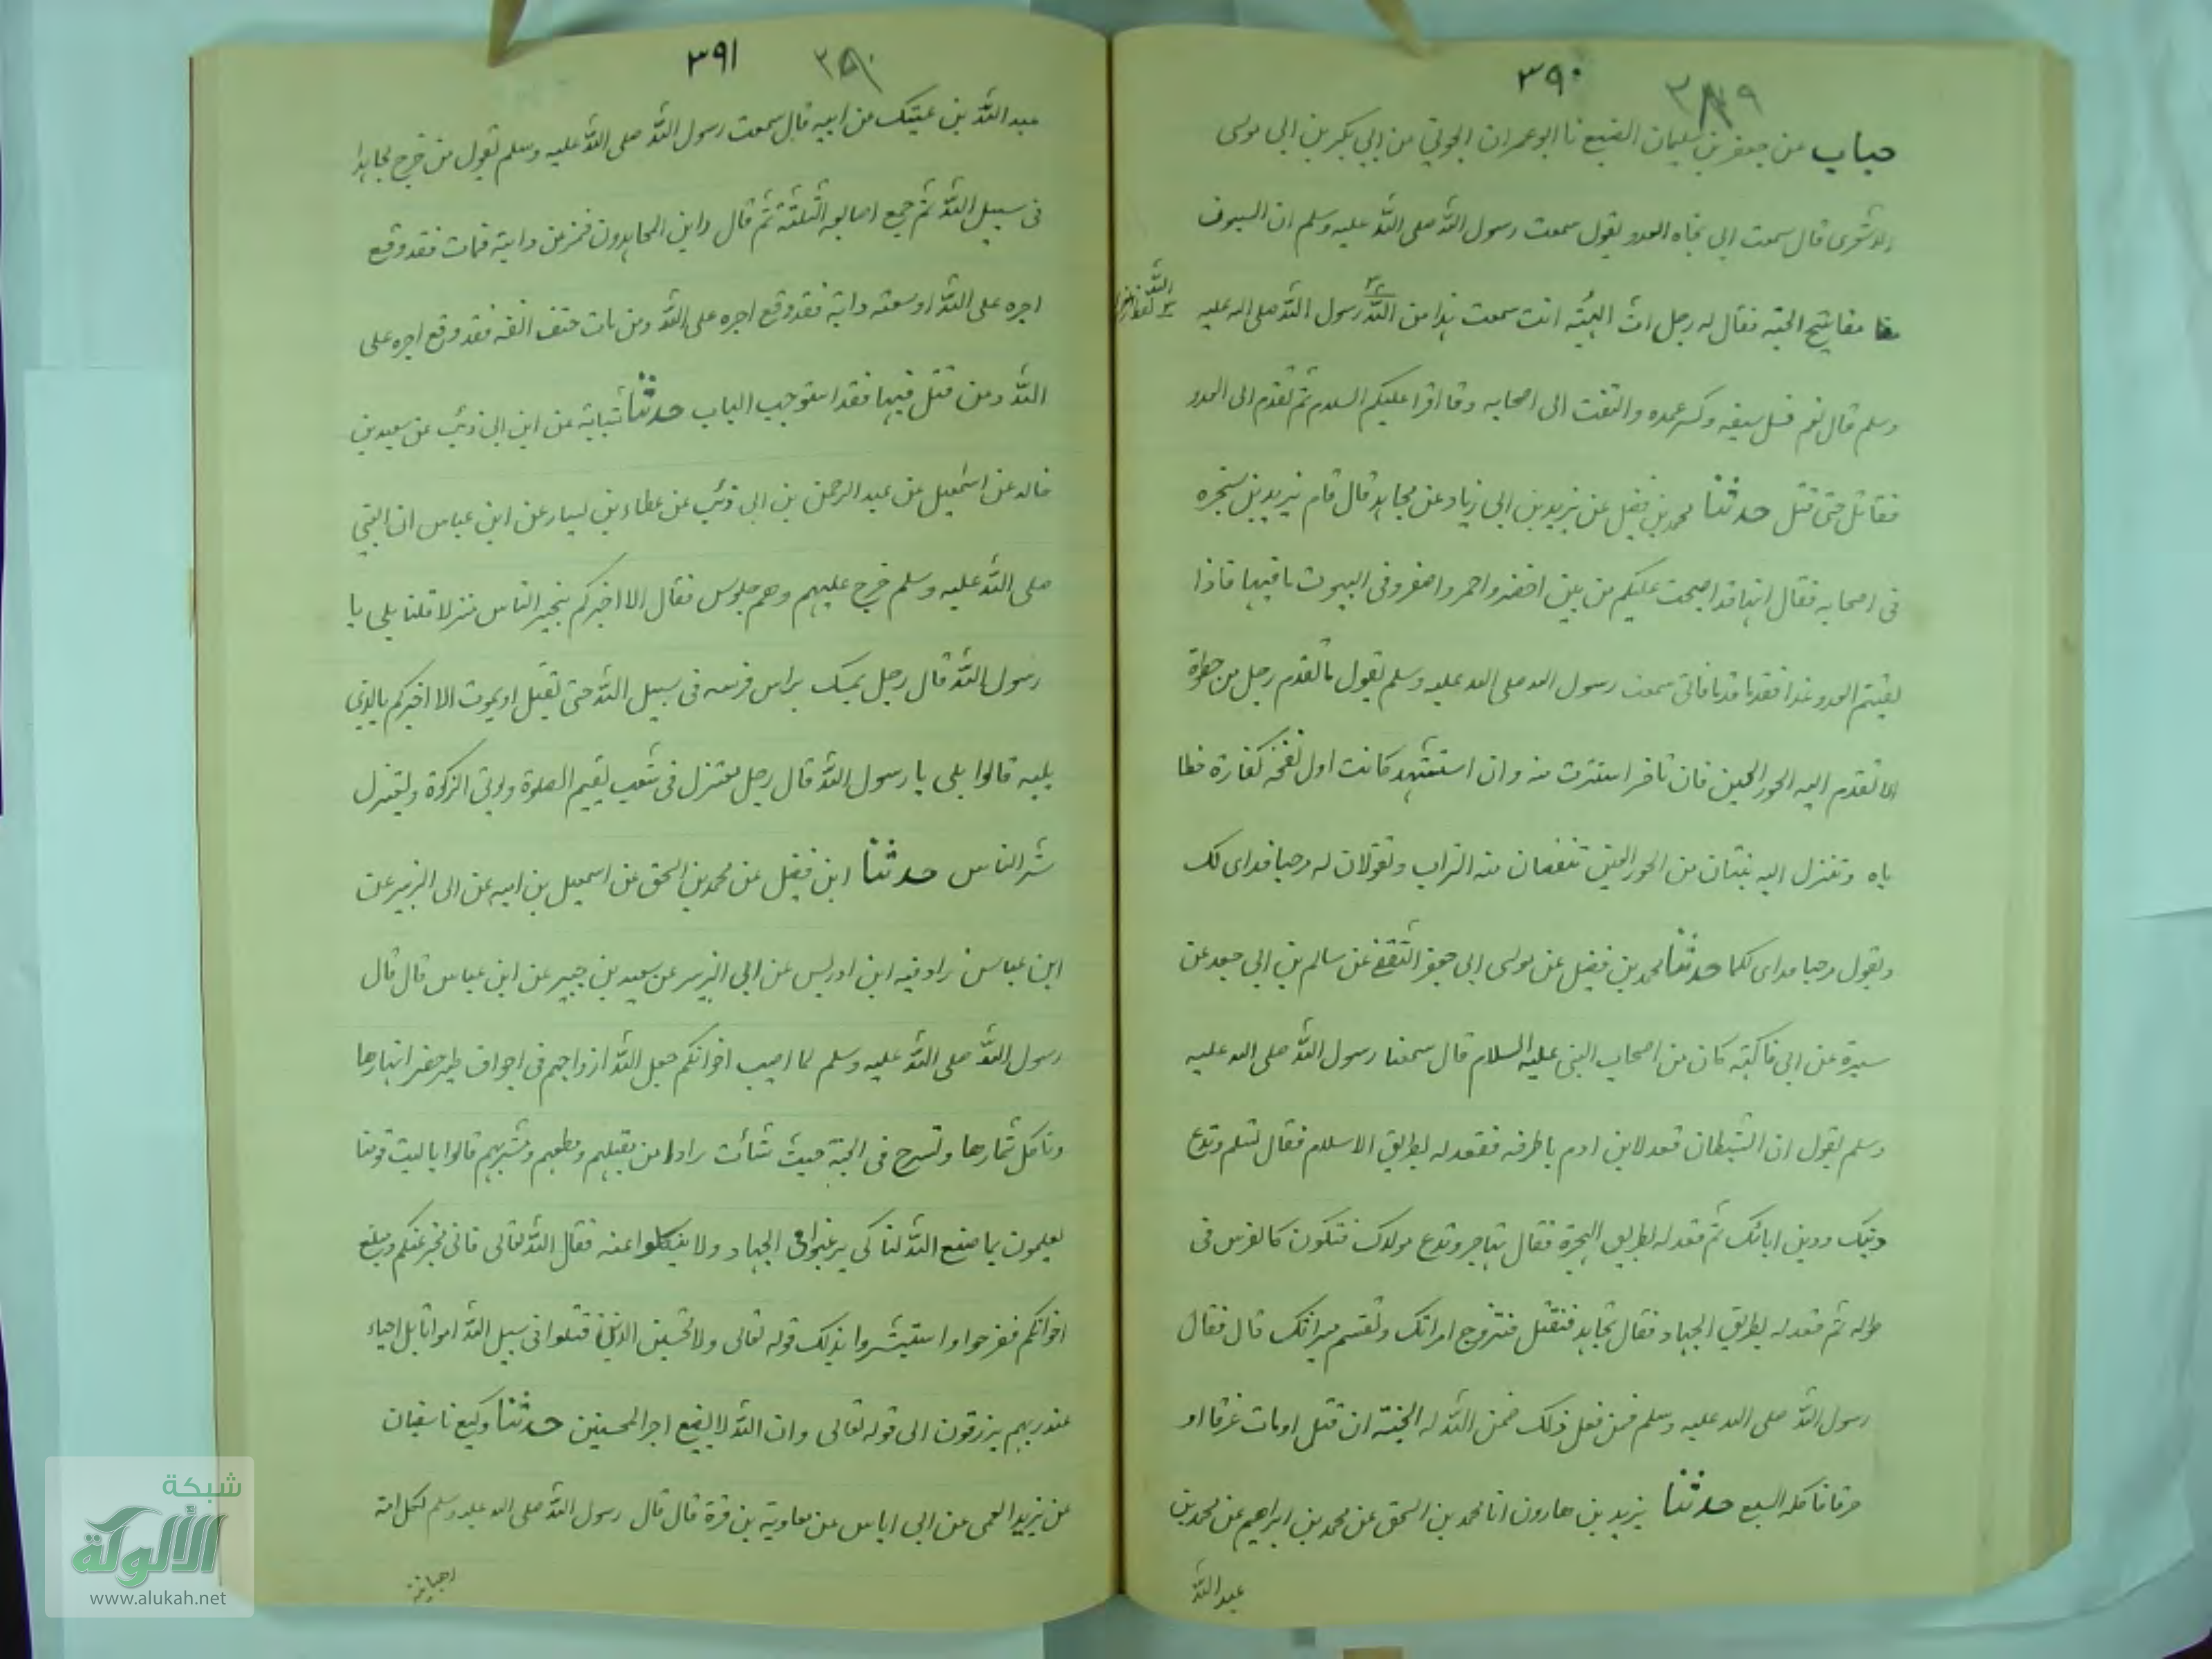 ٣٩٠
٣٨٩
حباب عن جعفر بن سليمان الضبع نا ابو عمران الجوني عن ابي بكر بن ابي موسى
الاشعرى قال سمعت ابي تجاه العدو يقول سمعت رسول الله صلى الله عليه وسلم ان السيوف
مفاتيح الجنة فقال له رجل رث الهيئة انت سمعت هذا من رسول الله صلى اله عليه
وسلم قال نعم فسل سيفه وكسر غمده والتفت الى اصحابه وقا اقرا عليكم السلام ثم تقدم الى العدو
فقاتل حتى قتل حدثنا محمد بن فضيل عن يزيد بن ابي زياد عن مجاهد قال قام يزيد بن شجره
فى اصحابه فقال انها قد اصبحت عليكم من بين اخضر واحمر واصفر وفى البيوت ما فيها فاذا
لقيتم العدو غدا فقدما قدما فانى سمعت رسول الله صلى الله عليه وسلم يقول ما تقدم رجل من خطوة
الا تقدم اليه الحور العين فان تاخر استترت منه وان استشهد كانت اول نفخه كفارة خطا
ياه وتنزل اليه ثنتان من الحور العين تنفضان عنه التراب وتقولان له مرحبا فداى لك
ويقول مرحبا فداى لكما حدثنا محمد بن فضيل عن موسى ابي جعفر الثقفى عن سالم بن ابي جعد عن
سبرة عن ابي فاكهة كان من اصحاب النبى عليه السلام قال سمعنا رسول الله صلى الله عليه
وسلم يقول ان الشيطان قعد لابن ادم باطرفه فقعد له بطريق الاسلام فقال تسلم وتدع
دينك ودين ابائك ثم قعد له بطريق الهجرة فقال تهاجر وتدع مولدك فتكون كالفرس فى
طوله ثم قعد له بطريق الجهاد فقال تجاهد فتقتل فتتزوج امراتك وتقسم ميراثك قال فقال
رسول الله صلى الله عليه وسلم فمن فعل ذلك ضمن الله له الجنة ان قتل او مات غرقا او
حرقا فاكله السبع حدثنا يزيد بن هارون انا محمد بن اسحق عن محمد بن ابراهيم عن محمد بن
عبد الله
٣٩١
٣٩٠
عبد الله بن عتيك عن ابيه قال سمعت رسول الله صلى الله عليه وسلم يقول من خرج مجاهدا
فى سبيل الله ثم جمع اصابعه الثلثة ثم قال واين المجاهدون فخر عن دابته فمات فقد وقع
اجره على الله او لسعته دابة فقد وقع اجره على الله ومن مات حتف انفه فقد وقع اجره على
الله ومن قتل فيها فقد استوجب الماب حدثنا شبابة عن ابن ابي ذئب عن سعيد بن
خالد عن اسمعيل عن عبد الرحمن بن ابي ذئب عن عطاء بن يسار عن ابن عباس ان النبى
صلى الله عليه وسلم خرج عليهم وهم جلوس فقال الا اخبركم بخير الناس منزلا قلنا بلى يا
رسول الله قال رجل يمسك براس فرسه فى سبيل الله حتى يقتل او يموت الا اخبركم بالذى
يليه قالوا بلى يا رسول الله قال رجل معتزل فى شعب يقيم الصلوة ويوتى الزكوة ويعتزل
شر الناس حدثنا ابن فضيل عن محمد بن اسحق عن اسمعيل بن اميه عن ابى الزبير عن
ابن عباس زاد فيه ابن ادريس عن ابي الزبير عن سعيد بن جبير عن ابن عباس قال قال
رسول الله صلى الله عليه وسلم لما اصيب اخوانكم جعل الله ارواحهم فى اجواف طير خضر انهارها
وتاكل ثمارها وتسرح فى الجنة حيث شائت راوا من مقيلهم ومطعمهم ومشربهم قالوا يا ليت قومنا
يعلمون بما صنع الله لنا كى يرغبوا فى الجهاد ولا ينكلوا عنه فقال الله تعالى فانى مخبر عنكم ومبلغ
اخوانكم ففرحوا واستبشروا بذلك قوله تعالى ولا تحسبن الذين قتلوا فى سبيل الله امواتا بل احياء
عند ربهم يرزقون الى قوله تعالى وان الله لا يضيع اجر المحسنين حدثنا وكيع نا سفيان
عن يزيد العمى عن ابى اياس عن معاوية بن قرة قال قال رسول الله صلى الله عليه وسلم لكل امة
رهبانية
شبكة
الألوكة
www.alukah.net